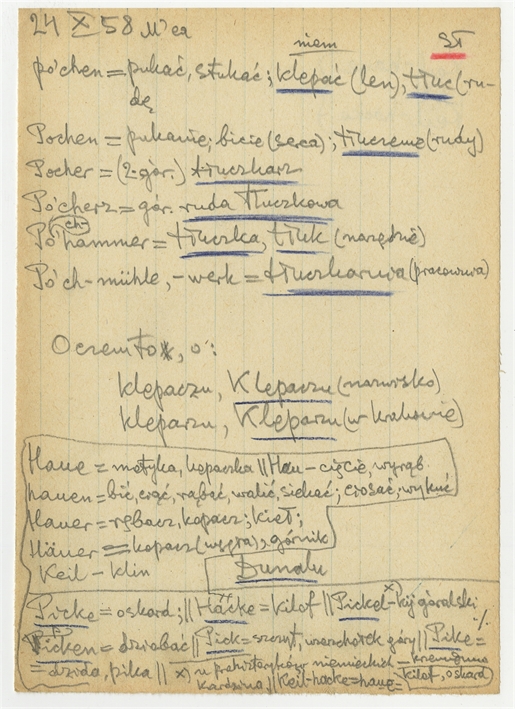 24 X 58 M'ea
niem SŁ
po'chen = pukać, stukać; klepać (len), tłuc (ru-
dę
Pochen = pukanie; bicie (serca); tłuczenie (rudy)
Pocher = (2-gór.) tłuczkarz
Po'cherz = gór. ruda tłuczkowa
Po'chhammer = tłuczka, tłuk (narzędzie)
Po'ch-mühle, -werk = tłuczkarnia (pracownia)
O czem to, o:
klepaczu, Klepaczu (nazwisko)
kleparzu, Kleparzu (w Krakowie)
Haue = motyka, kopaczka || Hau - cięcie, wyrąb
hauen = bić, ciąć, rąbać, walić, siekać; ciosać, wykuć
Hauer = rębacz, kopacz; kieł;
Häuer = kopacz (węgla), górnik
Keil - klin Dunalu
Picke = oskard; || Häcke = kilof || Pickel x) - kij góralski
Picken = dziobać || Pick = szczyt, wierzchołek góry || Pike = %
= dzida, pika || x) u prehistoryków niemieckich =
|| Keil-hacke = haue = kilof, oskard